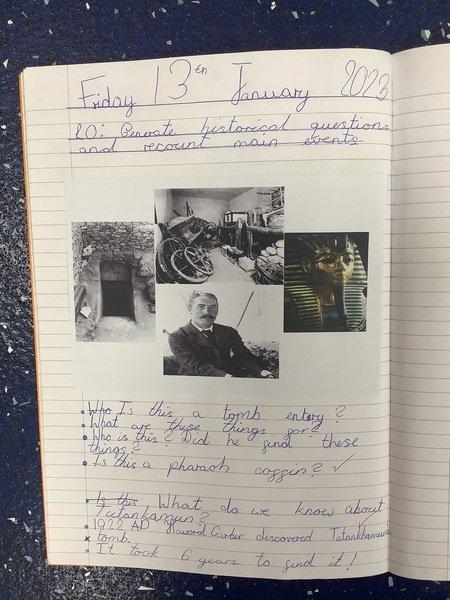 Friday 13th January 2023
LO: Generate historical questions
and recount main events
• Who Is this a tomb entry?
• What are these things for?
• Who is this? Did he find these
things?
• Is this a pharaoh coffin? ✓
• Is this What do we know about
Tutankamun?
• 1922 AD Haword Carber discovered Tatankhamun
× tomb.
• It took 6 years to find it!